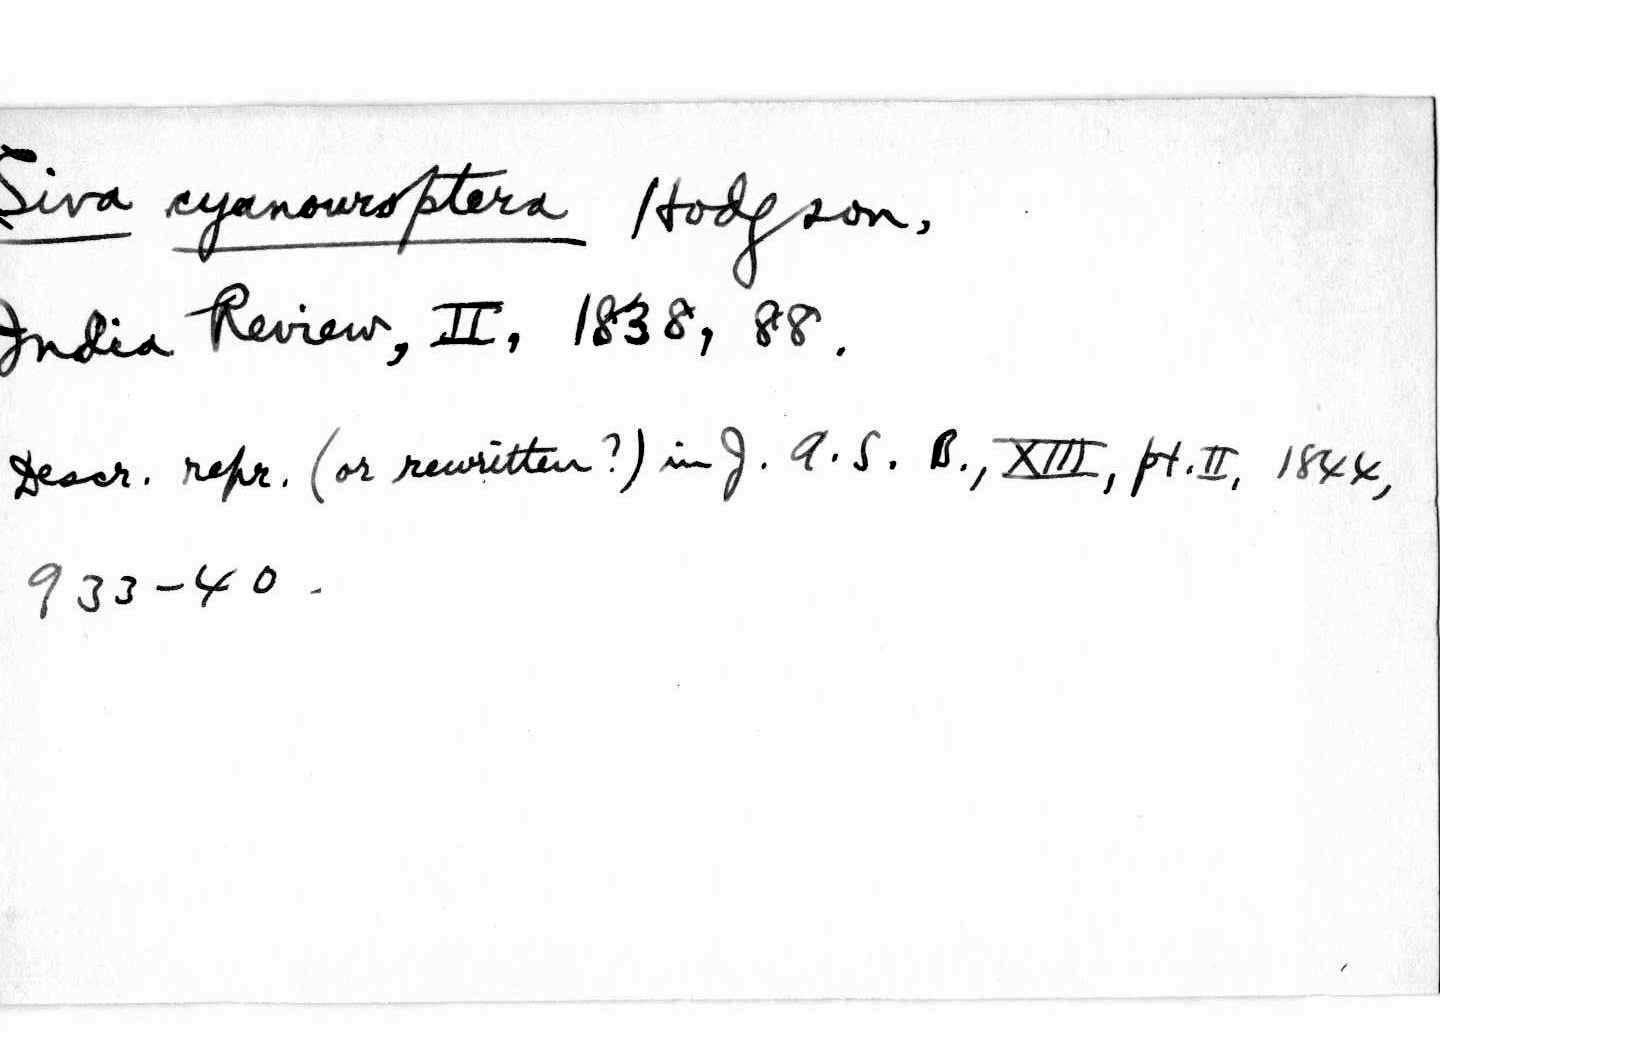 Siva cyanouroptera Hodgson,
India Review, II, 1838, 88.
Descr. repr. (or rewritten?) in J. A. S. B., XIII, pt. II, 1844,
933-40.